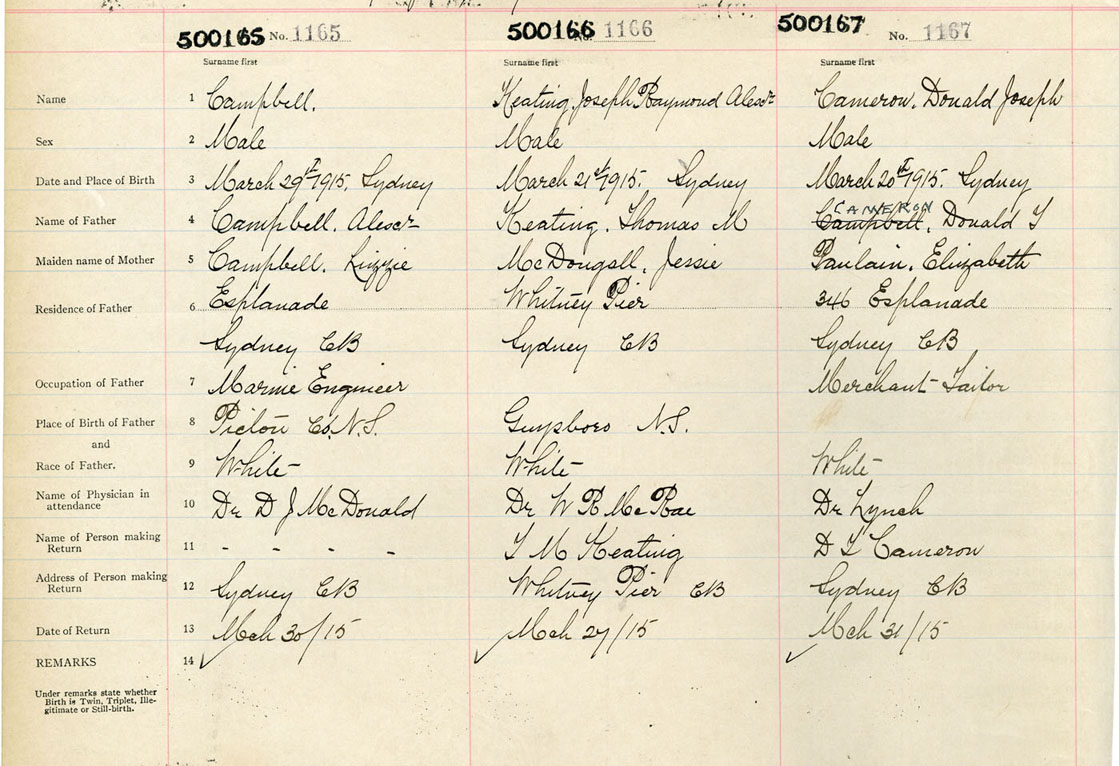 500165 No. 1165 500166 No. 1166 500167 No. 1167
Surname first Surname first Surname first
Name 1 Campbell. Keating, Joseph Raymond Alexr Cameron, Donald Joseph
Sex 2 Male Male Male
Date and Place of Birth 3 March 29th 1915, Sydney March 21st 1915. Sydney March 20th 1915. Sydney
CAMERON
Name of Father 4 Campbell. Alexr Keating. Thomas M Campbell, Donald J
Maiden name of Mother 5 Campbell. Lizzie McDougall, Jessie Paulain, Elizabeth
Residence of Father 6 Esplanade Whitney Pier 346 Esplanade
Sydney CB Sydney CB Sydney CB
Occupation of Father 7 Marine Engineer Merchant Tailor
Place of Birth of Father 8 Pictou Co. N.S. Guysboro N.S.
and
Race of Father. 9 White White White
Name of Physician in
attendance 10 Dr D J McDonald Dr W R McRae Dr Lynch
Name of Person making
Return 11 - - - - T M Keating D J Cameron
Address of Person making
Return 12 Sydney CB Whitney Pier CB Sydney CB
Date of Return 13 Mch 30/15 Mch 27/15 Mch 31/15
REMARKS 14
Under remarks state whether
Birth is Twin, Triplet, Ille-
gitimate or Still-birth.